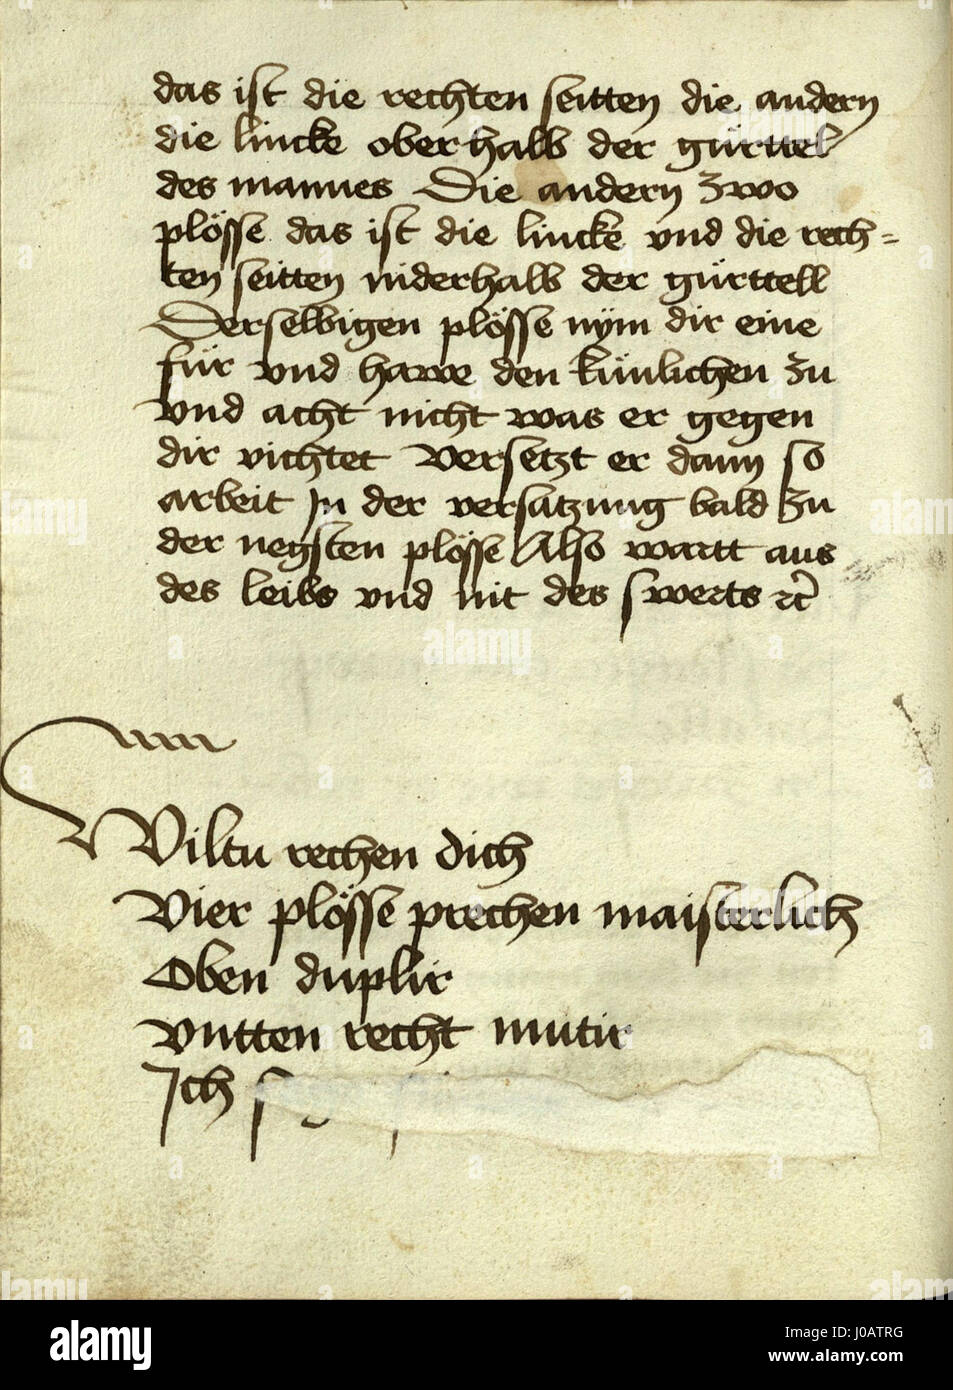 das ist die rechten seitten die andern
die lincke oberhalb der gürttel
des mannes Die andern zwo
plösse das ist die lincke vnd die rech=
ten seitten niderhalb der gürttell
Derselbigen plösse nÿm dir eine
für vnd hawe den künlichen zu
vnd acht nicht was er gegen
dir vichtet Versetzt er dann so
arbeit Jn der versatzung bald zu
der negsten plösse Also wartt aus
des leibs vnd nit des swerts rc̃
Wiltu rechen dich
Vier plösse prechen maisterlich
Oben duplir
Vntten recht mutir
Jch
alamy
Image ID: J0ATRG
www.alamy.com